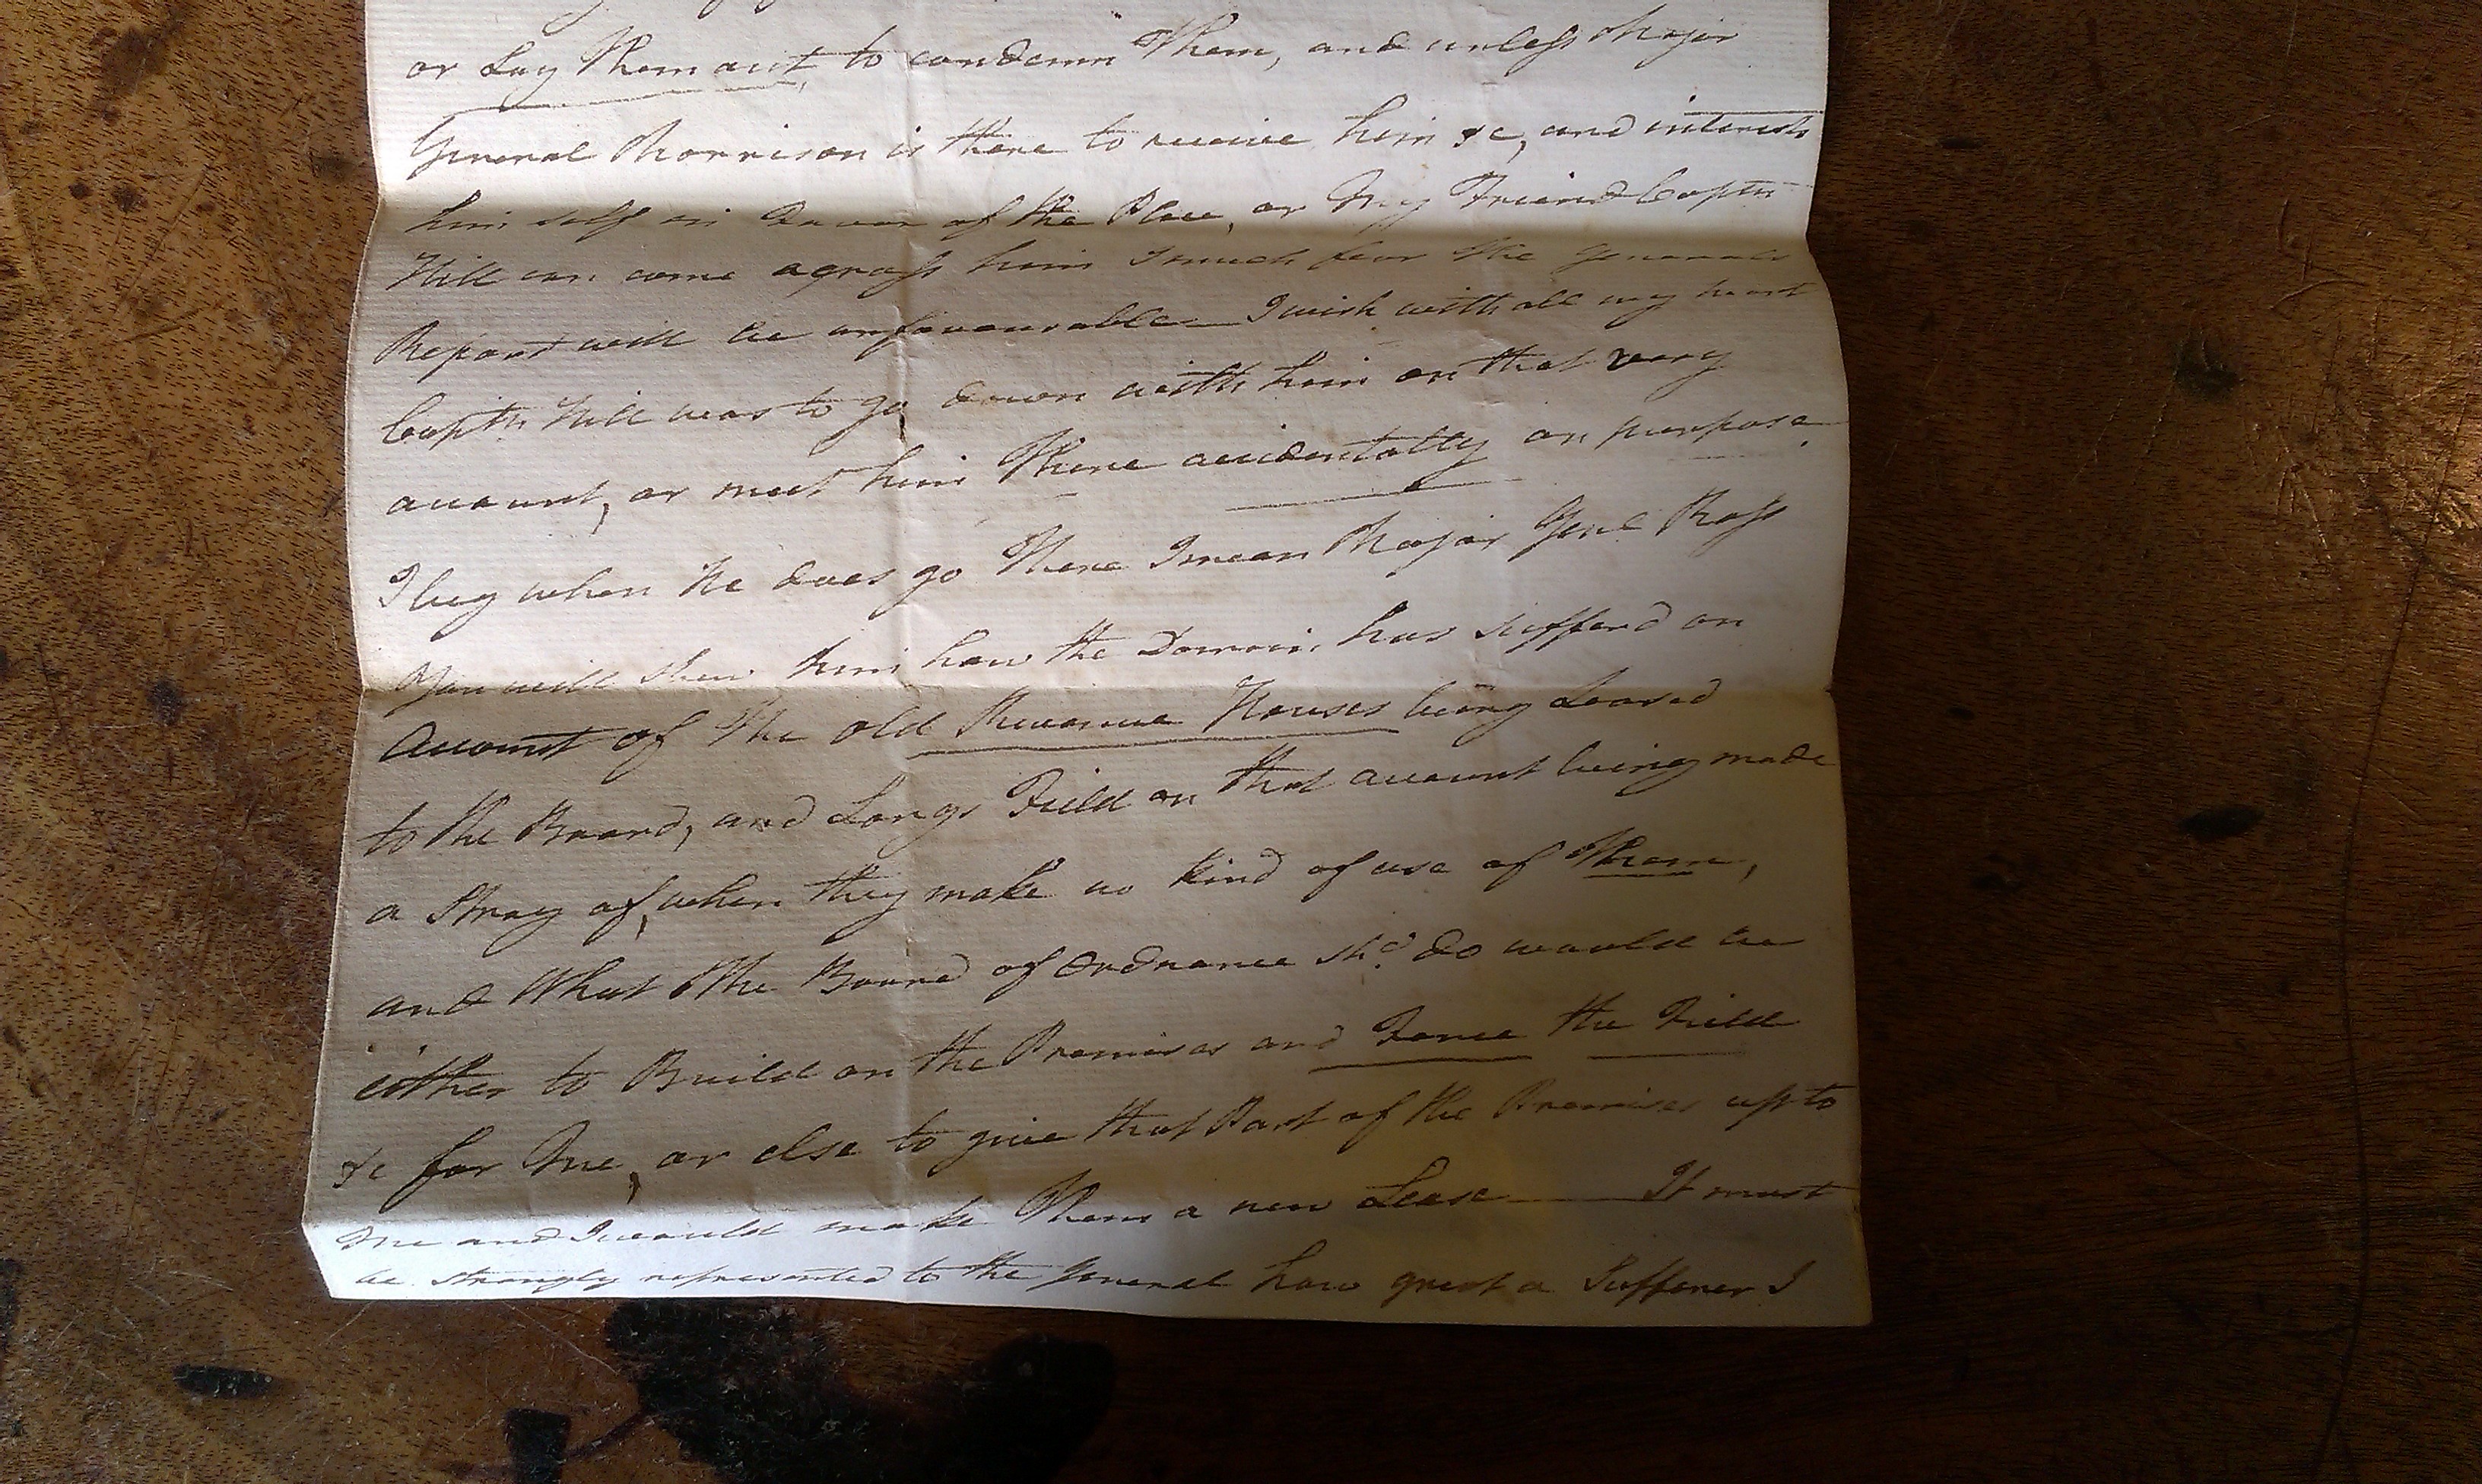 or Lay Them out, to condemn Them, and unless Major
General Morrison is there to receive him &c, and interests
him self in Favor of the Place, or My Friend Captn
Hill can come across him I much fear the Generals
Report will be unfavourable — I wish with all my heart
Captn Hill was to go down with him on that very
account, or meet him There accidentally on purpose.
I beg when He does go There I mean Major Genl Ross
You will shew him how the Domain has sufferd on
Account of The old Revenue Houses being Leased
to the Board, and Longs Field on that account being made
a Stray of, when they make no kind of use of Them,
and What The Board of Ordnance shd do would be
either to Build on the Premises and Fence the Field
&c for Me, or else to give that Part of the Premises up to
Me and I would make Them a new Lease — It must
be strongly represented to the General how great a Sufferer I